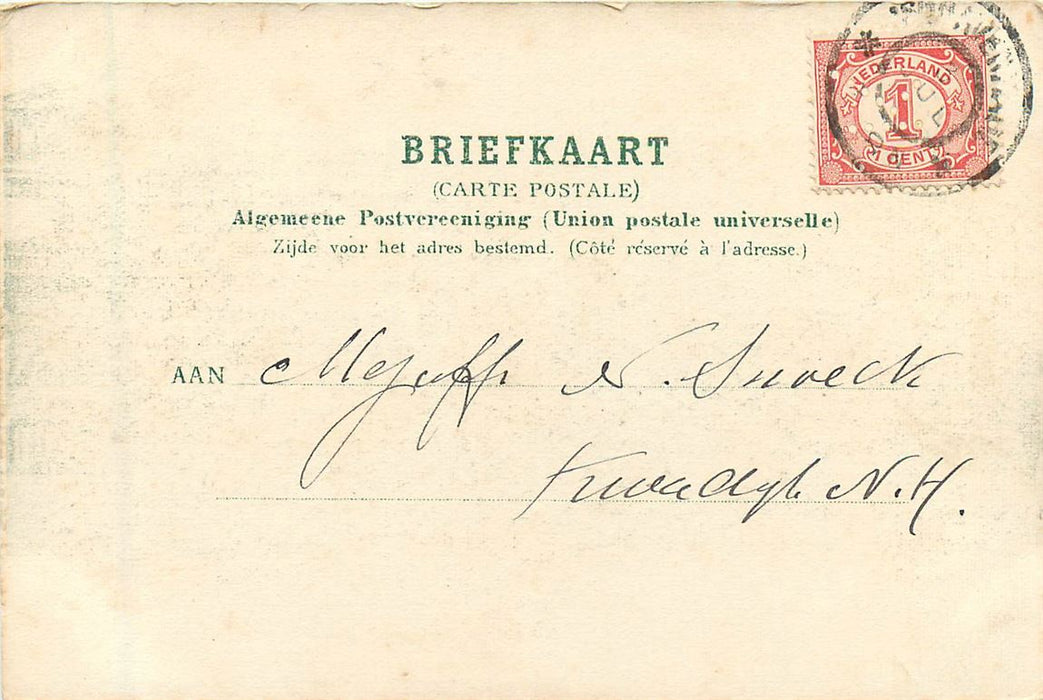 NEDERLAND
1
1 CENT
JUL
BRIEFKAART
(CARTE POSTALE)
Algemeene Postvereeniging (Union postale universelle)
Zijde voor het adres bestemd. (Côté réservé à l'adresse.)
AAN Mejuffr N. Snoeck
Kwadyk N.H.